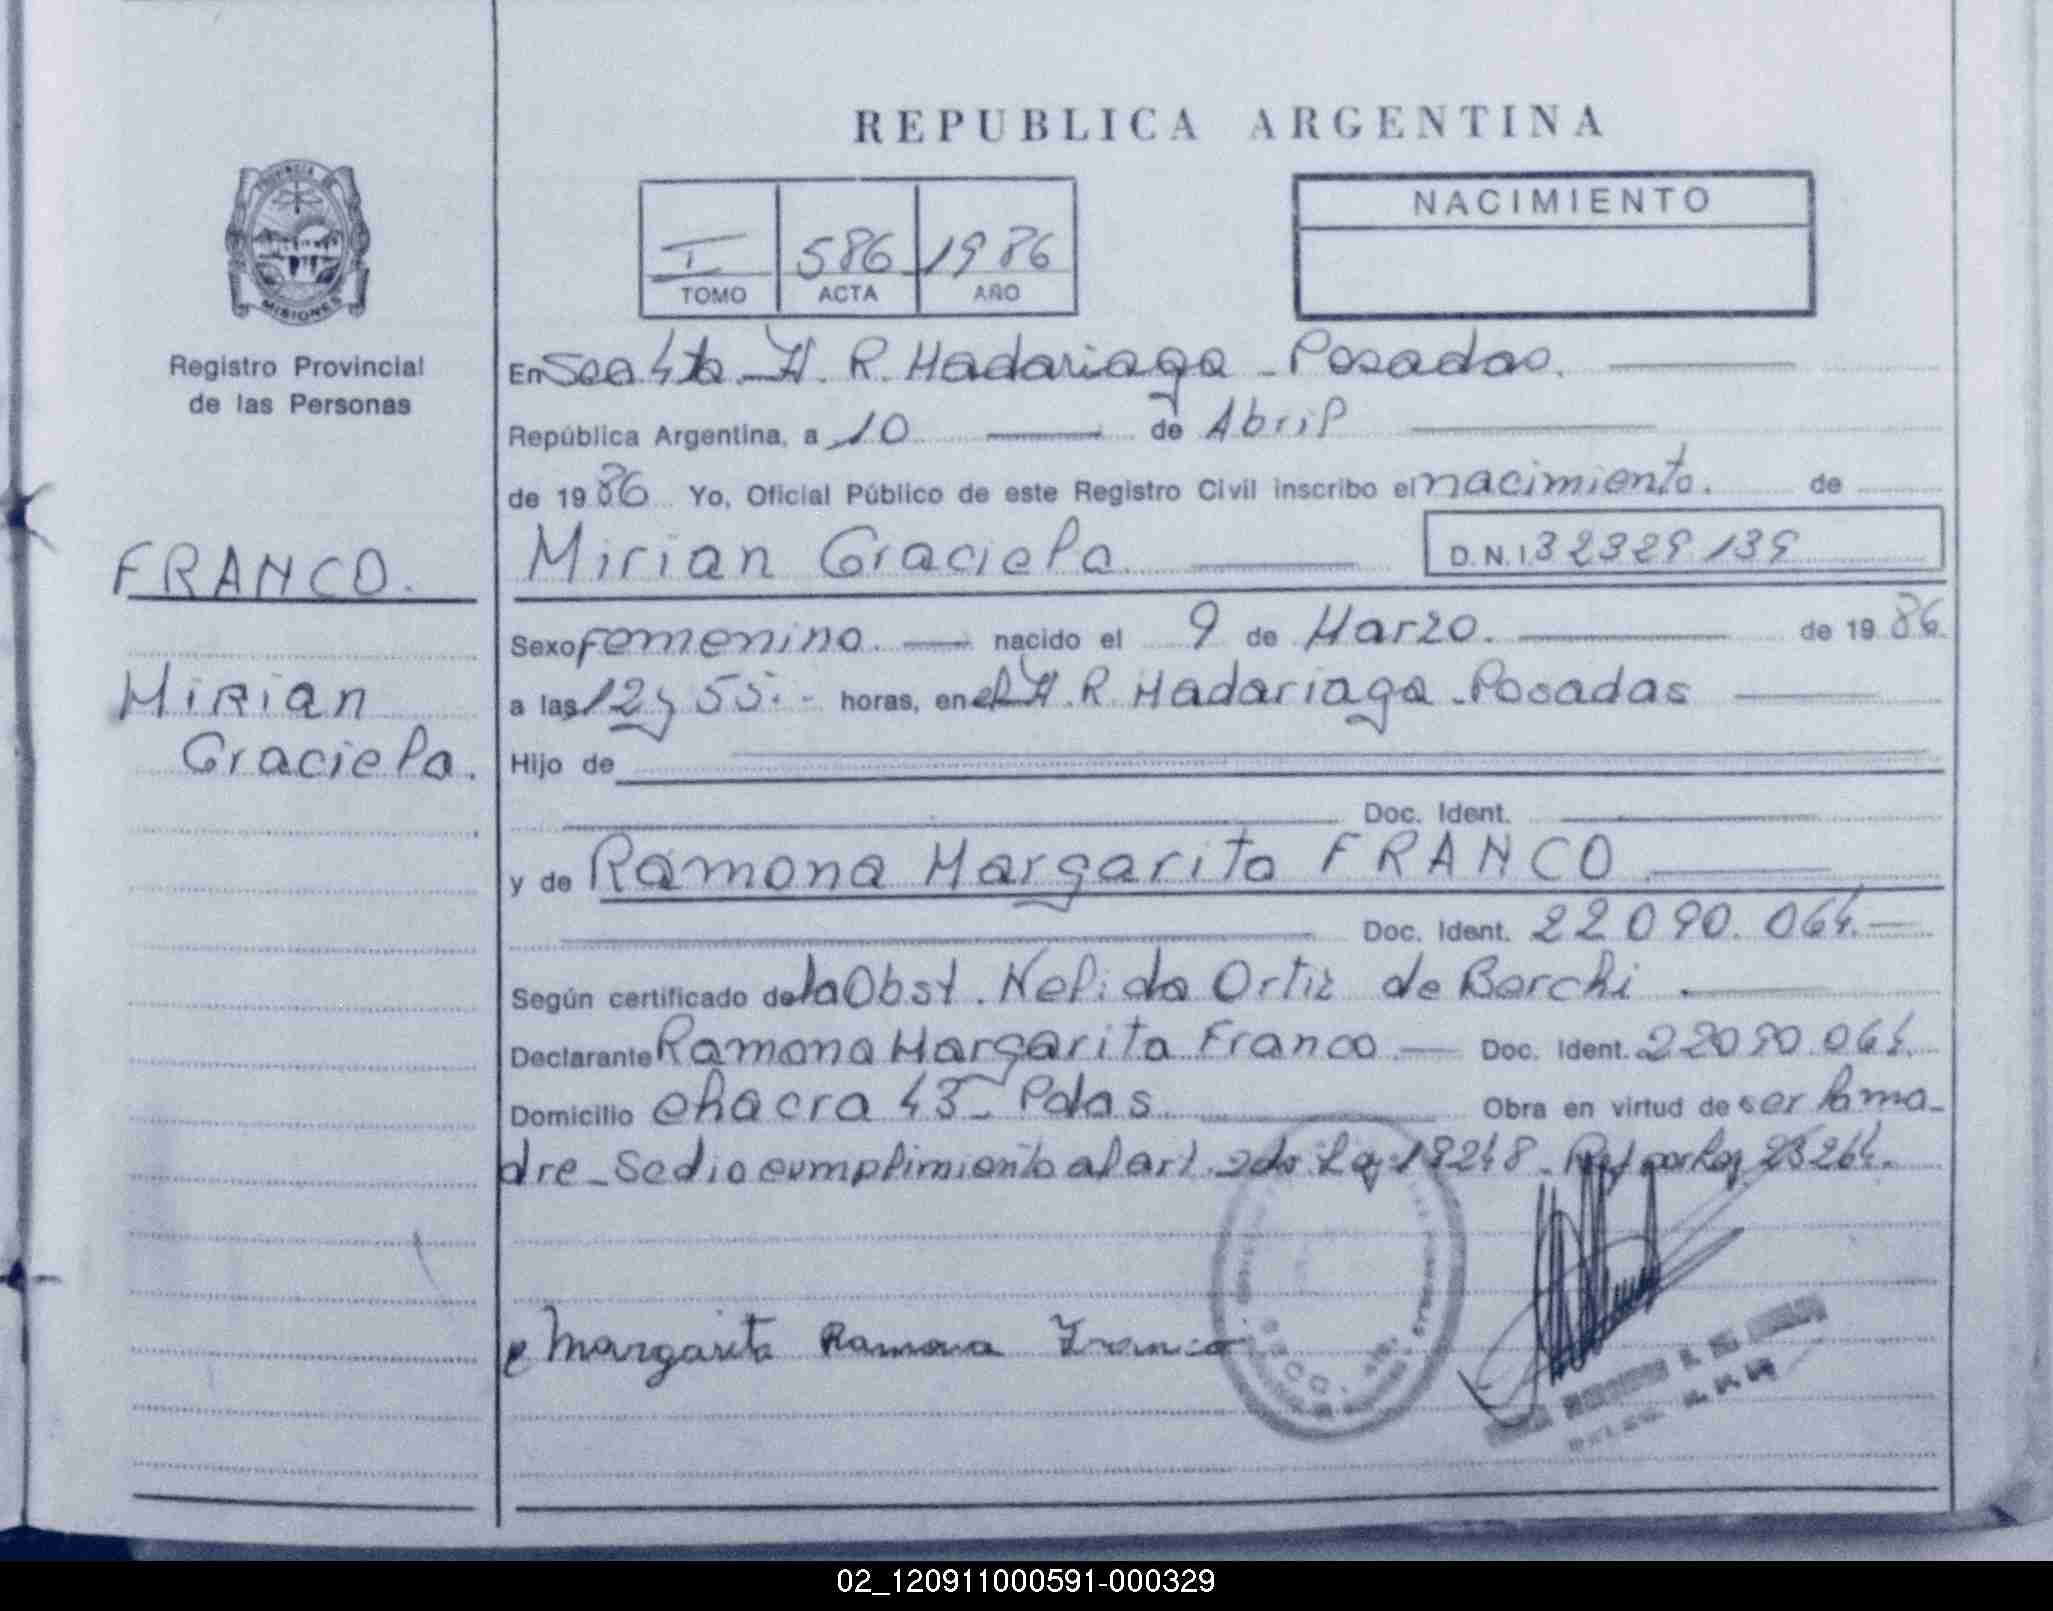 REPUBLICA ARGENTINA
PROVINCIA DE
MISIONES
Registro Provincial
de las Personas
I 586 1986
TOMO ACTA AÑO
NACIMIENTO
En Sec 4ta. H. R. Madariaga - Posadas.
República Argentina, a 10 de Abril
de 1986 Yo, Oficial Público de este Registro Civil inscribo el nacimiento. de
FRANCO.
Mirian Graciela D.N.I. 32329139
Sexo femenino. nacido el 9 de Marzo. de 1986.
Mirian
a las 12 y 55.- horas, en el H. R. Madariaga - Posadas
Graciela.
Hijo de
Doc. Ident.
y de Ramona Margarita FRANCO
Doc. Ident. 22090.064.-
Según certificado de la Obst. Nelida Ortiz de Borchi
Declarante Ramona Margarita Franco Doc. Ident. 22090.064.
Domicilio chacra 43- Pdas Obra en virtud de ser la ma-
dre - Se dio cumplimiento al art. 2do Ley 18248. Ref por Ley 23264.
Margarita Ramona Franco
02_120911000591-000329